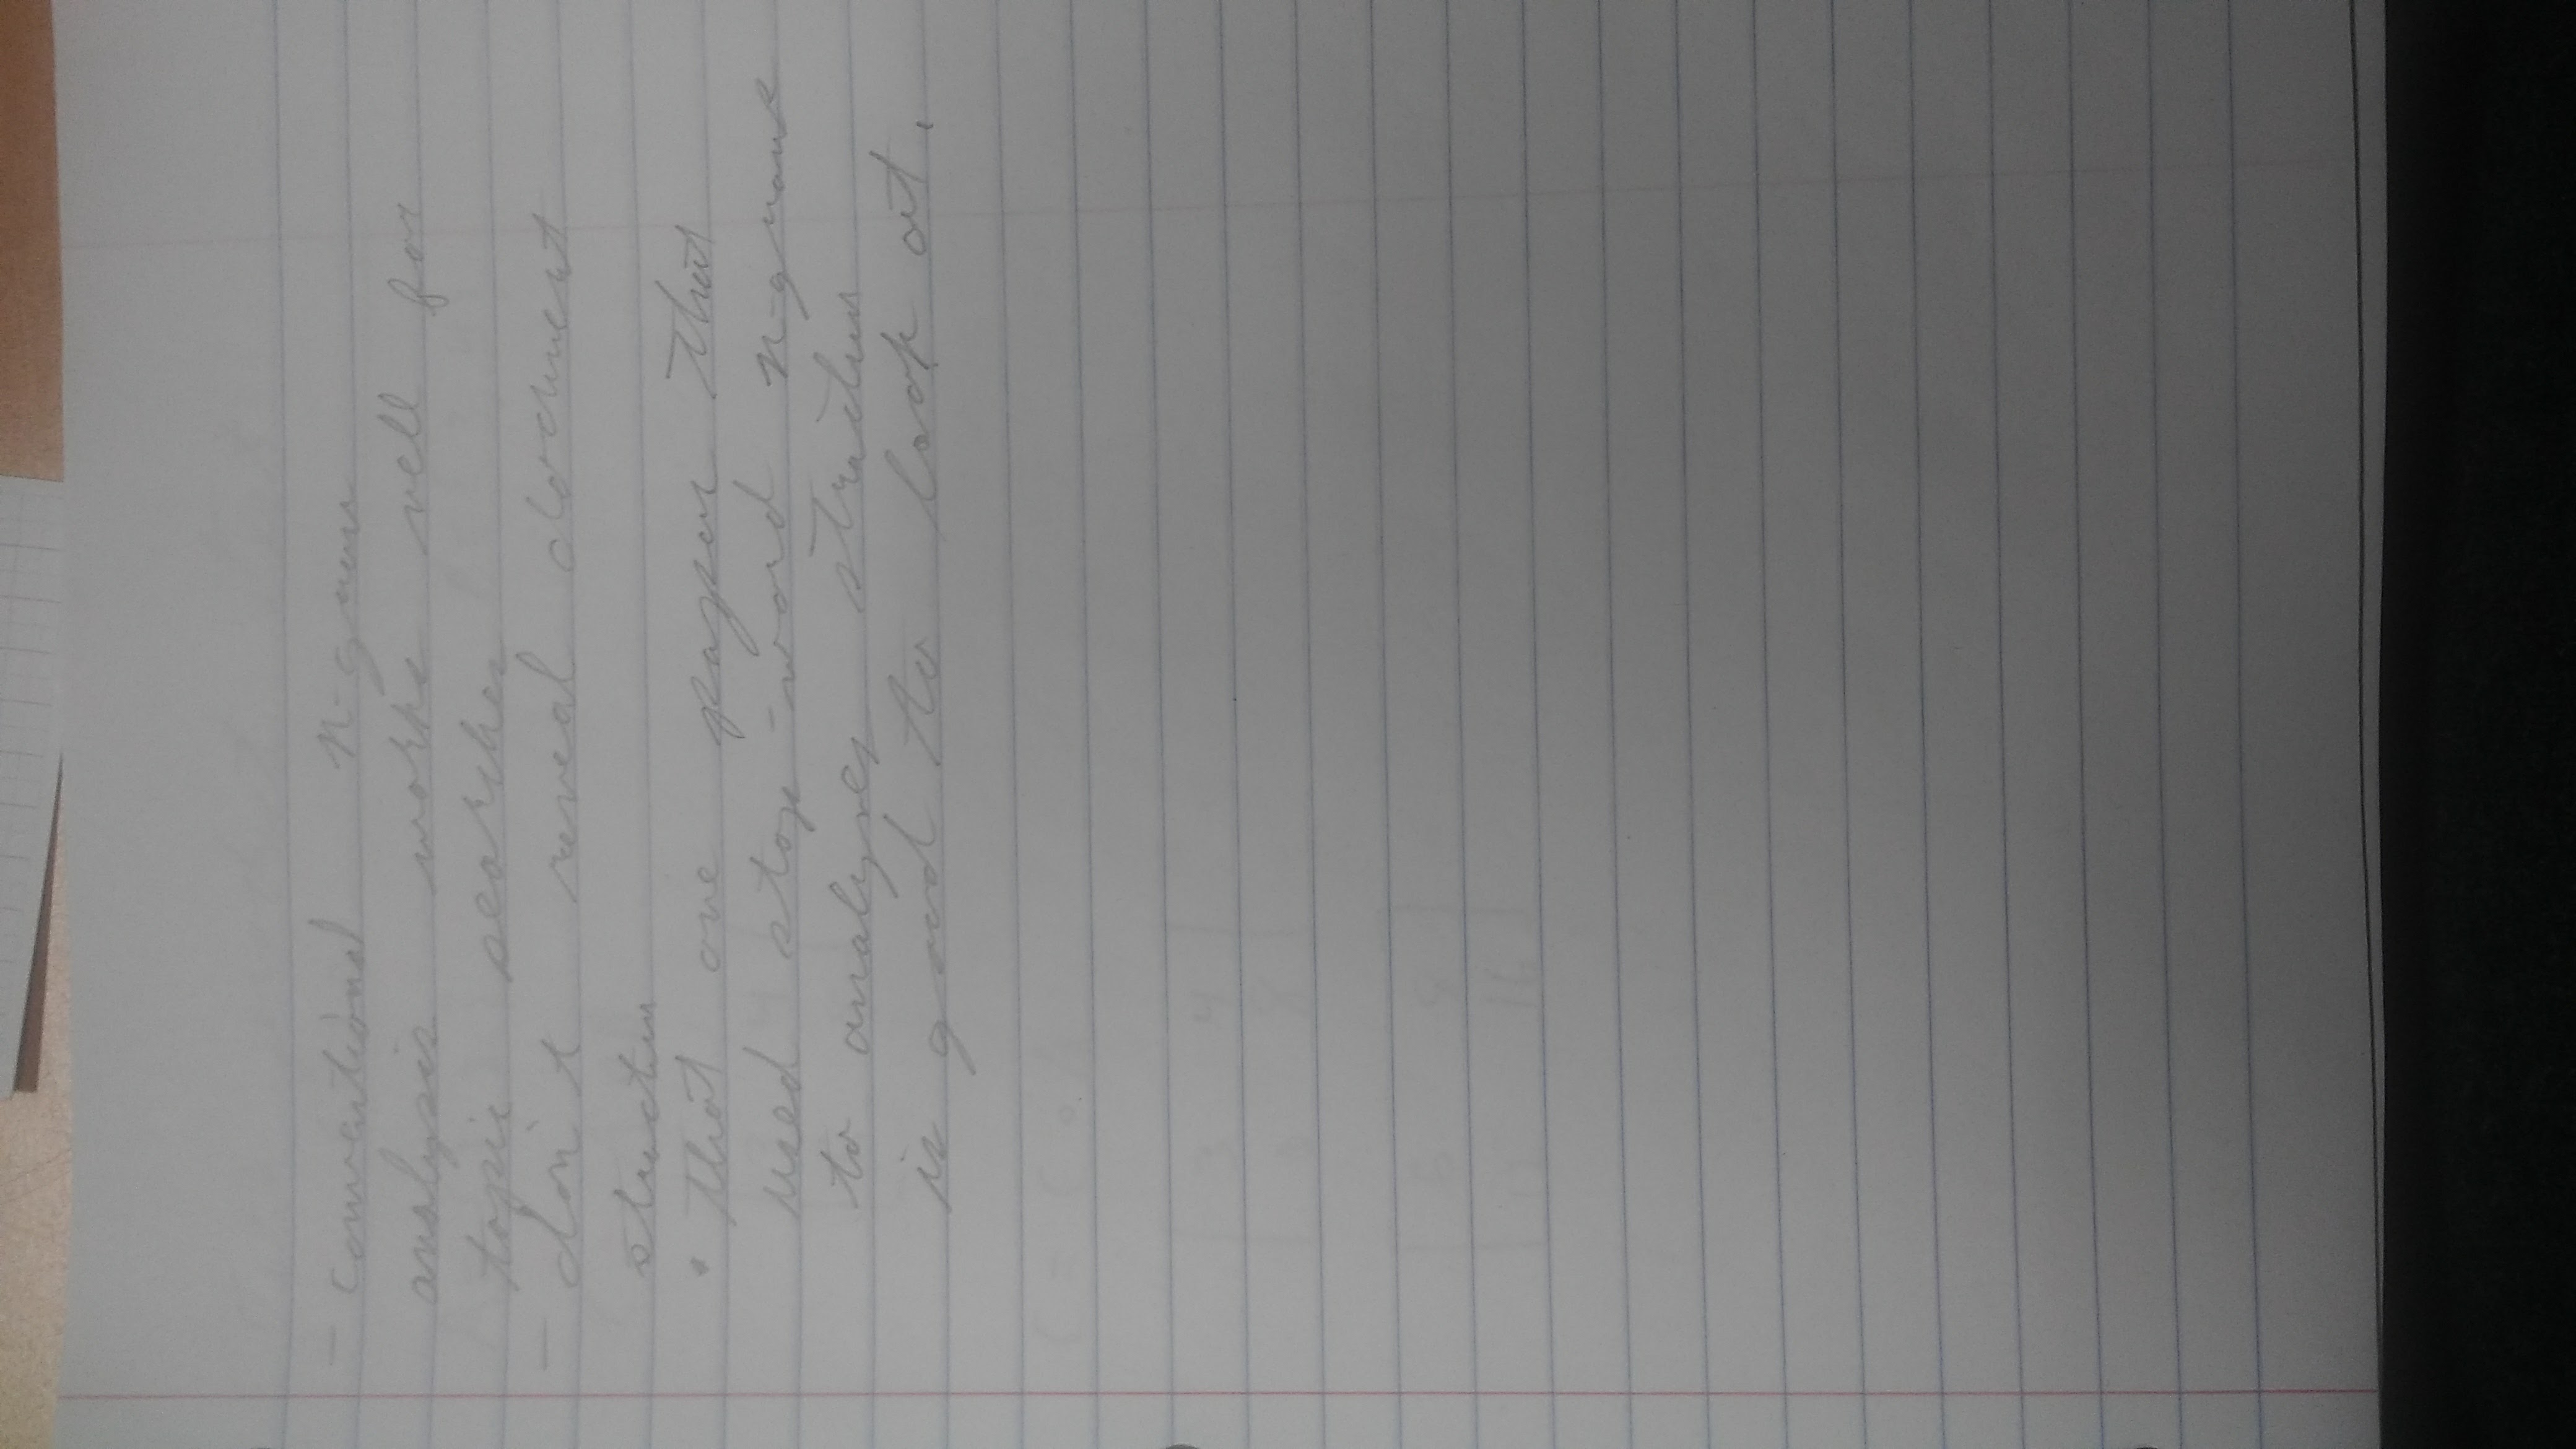 - conventional n-gram
analysis works well for
topic searches
- don't reveal document
structure
• that one paper that
used stop-word n-grams
to analyses structure
is good to look at.